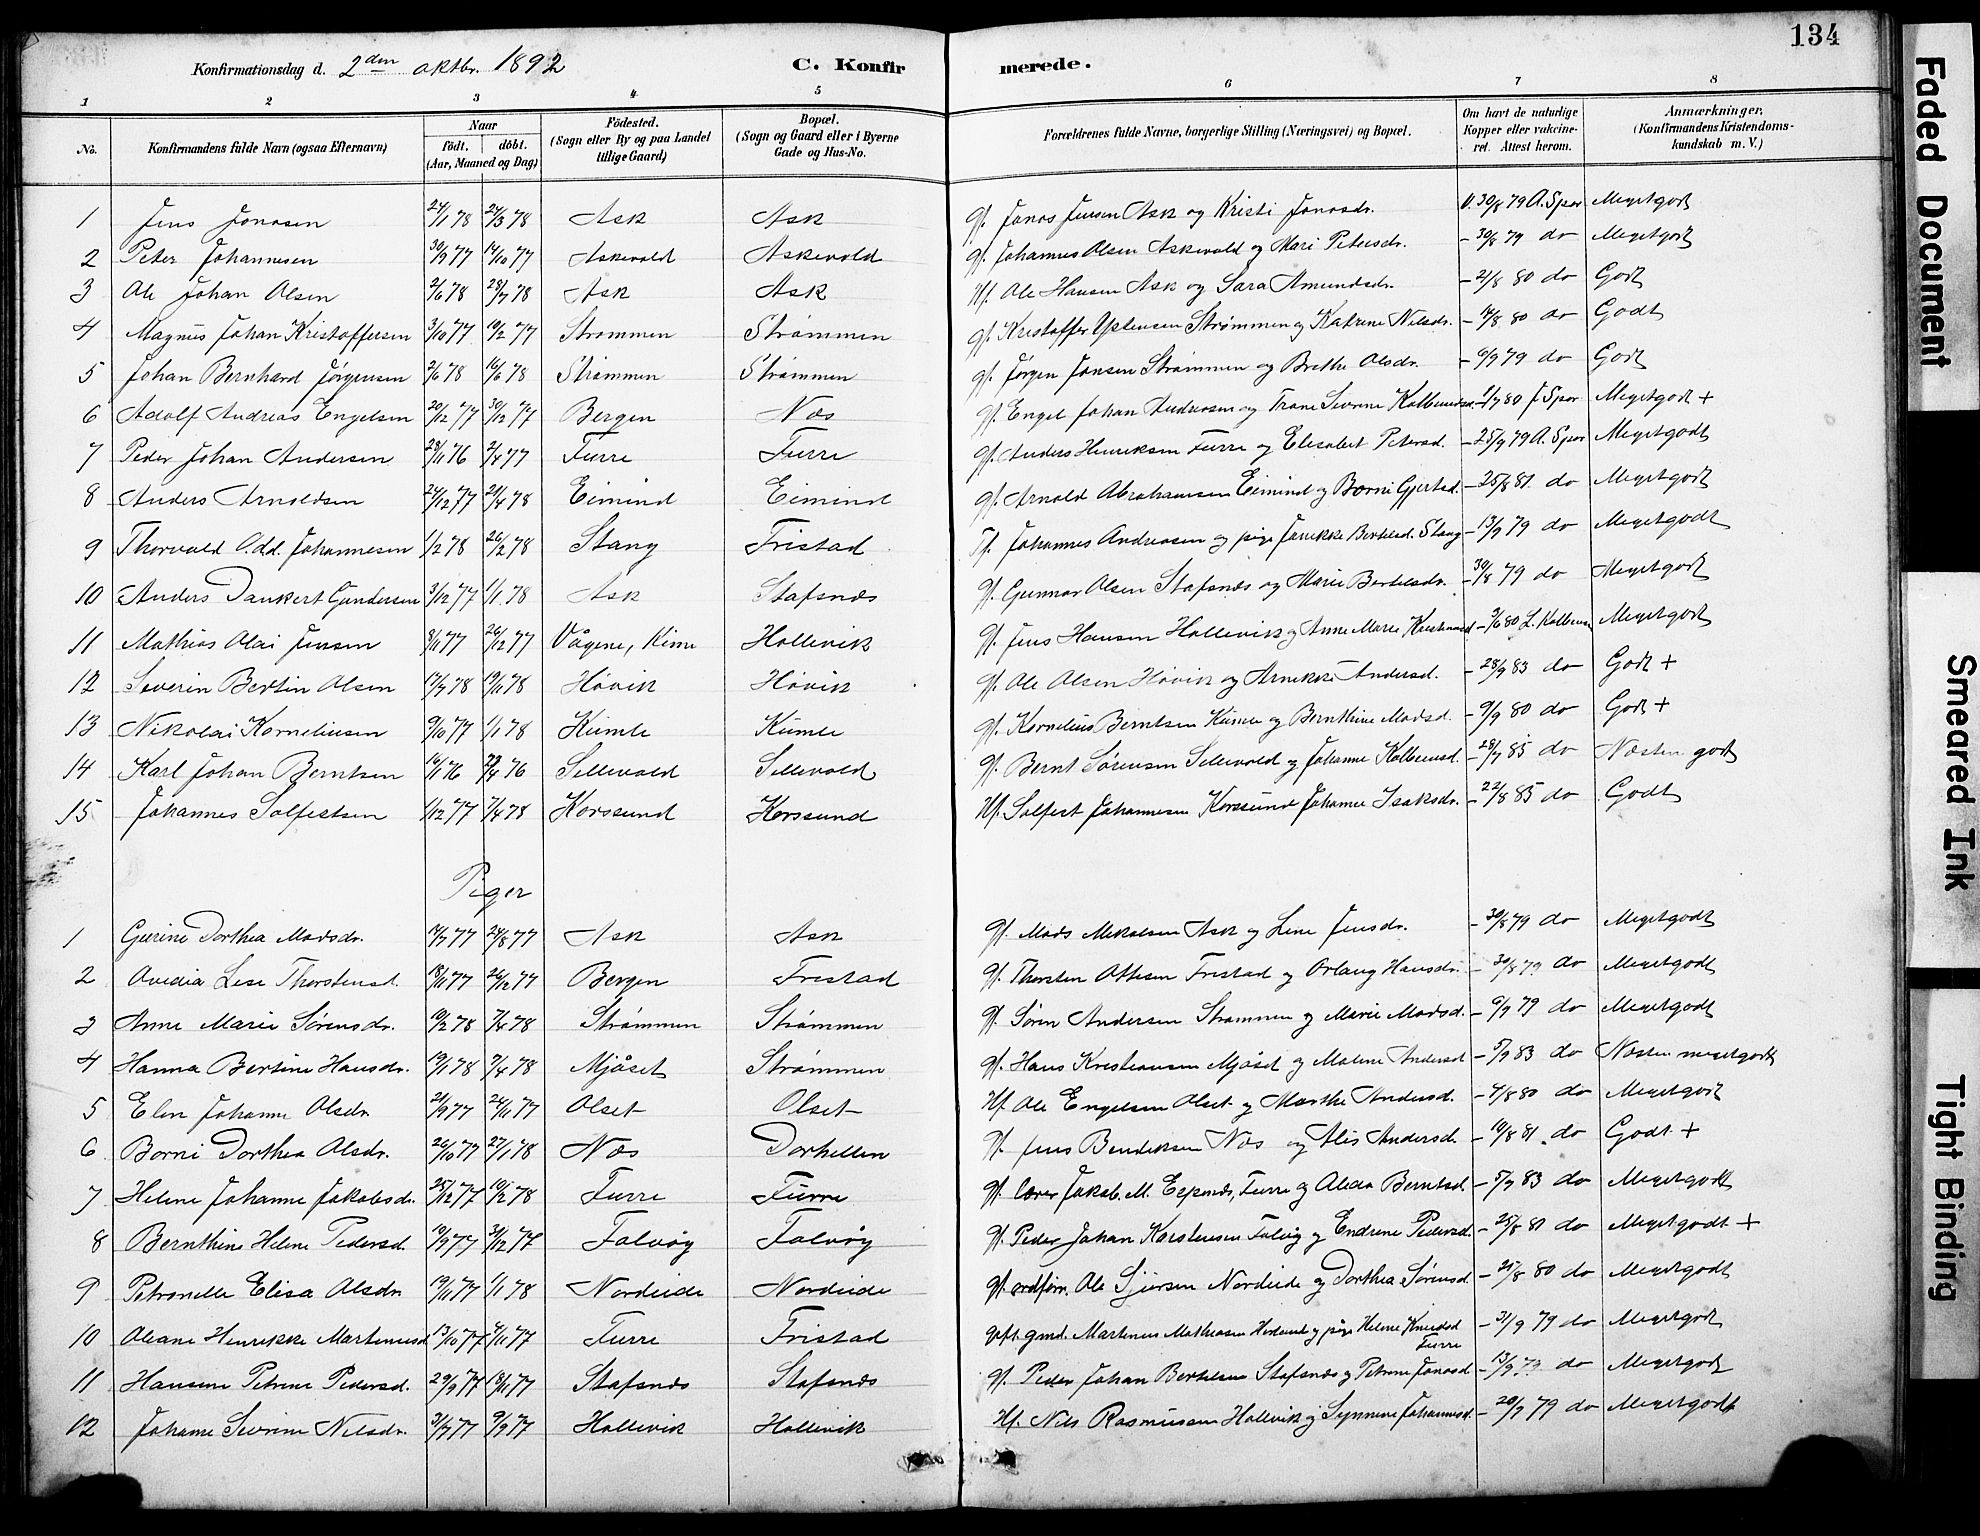 134
Konfirmationsdag d. 2den oktbr. 1892 C. Konfirmerede.
1 2 3 4 5 6 7 8
No. Konfirmandens fulde Navn (ogsaa Efternavn) Naar født. døbt. (Aar, Maaned og Dag) Fødested. (Sogn eller By og paa Landet tillige Gaard) Bopæl. (Sogn og Gaard eller i Byerne Gade og Hus-No. Forældrenes fulde Navne, borgerlige Stilling (Næringsvei) og Bopæl. Om havt de naturlige Kopper eller vakcineret. Attest herom. Anmærkninger. (Konfirmandens Kristendomskundskab m. V.)
1 Jens Jonasen 24/1 78 24/3 78 Ask Ask Gf. Jonas Jensen Ask og Kristi Jonasdr. V. 30/8 79 A. Spor Megetgodt
2 Peter Johannesen 30/9 77 14/10 77 Askevold Askevold Gf. Johannes Olsen Askevold og Mari Petersdr. - 30/8 79 do Megetgodt
3 Ole Johan Olsen 2/6 78 28/7 78 Ask Ask Hf. Ole Hansen Ask og Sara Amundsdr. - 21/8 80 do Godt
4 Magnus Johan Kristoffersen 3/10 77 19/2 77 Strømmen Strømmen Gf. Kristoffer Strømmen og Katrine Nilsdr. - 14/8 80 do Godt
5 Johan Bernhard Jørgensen 2/6 78 16/6 78 Strømmen Strømmen Gf. Jørgen Jonsen Strømmen og Brethe Olsdr. - 6/9 79 do Godt
6 Adolf Andreas Engelsen 20/12 77 30/12 77 Bergen Næs Gf. Engel Johan Andreasen og Trane Severine Kolbeinsd. - 1/7 80 J Spor Megetgodt +
7 Peder Johan Andersen 28/11 76 2/4 77 Furre Furre Gf. Anders Henriksen Furre og Elisabet Petersd. - 25/9 79 A. Spor Megetgodt
8 Anders Arnoldsen 24/12 77 21/4 78 Eimind Eimind Gf. Arnold Abrahamsen Eimind og Borni Gjertsd. - 25/8 81 do Megetgodt
9 Thorvald Odd. Johannesen 1/2 78 26/2 78 Stang Fristad Tf. Johannes Andreasen og pige Janikke Bertelsd. Stang - 13/9 79 do Megetgodt
10 Anders Dankert Gundersen 3/12 77 1/1 78 Ask Stafsnæs Gf. Gunnar Olsen Stafsnæs og Marie Bertelsdr. - 30/8 79 do Megetgodt
11 Mathias Olai Jensen 8/11 77 26/12 77 Vågene, Kinn Hollevik Gf. Jens Hansen Hollevik og Anne Marie Kristensd - 3/6 80 L. Kolbens Megetgodt
12 Severin Bertin Olsen 17/7 78 19/11 78 Høvik Høvik Gf. Ole Olsen Høvik og Arnekke Andersd. - 28/9 83 do Godt +
13 Nikolai Korneliusen 9/10 77 1/1 78 Kumle Kumle Gf. Kornelius Berntsen Kumle og Bernthine Madsd. - 9/9 80 do Godt +
14 Karl Johan Berntsen 16/1 76 23/4 76 Sellevold Sellevold Gf. Bernt Sørensen Sellevold og Johanne Kolbeinsd. - 28/7 85 do Næsten godt
15 Johannes Solfestsen 1/12 77 7/4 78 Korssund Korssund Hf. Solfest Johannesen Korssund Johanne Isaksdr. - 22/8 85 do Godt
Piger
1 Gurine Dorthea Madsdr. 14/7 77 24/8 77 Ask Ask Gf. Mads Mikalsen Ask og Line Jensdr. - 30/8 79 do Megetgodt
2 Ovedia Lese Thorstensd. 18/11 77 26/12 77 Bergen Fristad Gf. Thorsten Ottesen Fristad og Orlaug Hansdr. - 30/8 79 do Megetgodt
3 Anne Marie Sørensdr. 19/2 78 7/4 78 Strømmen Strømmen Gf. Søren Andersen Strømmen og Marie Madsd. - 6/9 79 do Megetgodt
4 Hanna Bertine Hansdr. 19/1 78 7/4 78 Mjåset Strømmen Gf. Hans Kristiansen Mjåset og Malene Andersd - 5/9 83 do Næsten megetgodt
5 Elen Johanne Olsdr 21/9 77 24/11 77 Olset Olset Hf. Ole Engelsen Olset og Marthe Andersd. - 4/8 80 do Megetgodt
6 Borni Dorthea Olsdr. 26/10 77 27/1 78 Næs Dorhellen Gf. Jens Bendiksen Næs og Alis Andersd. - 19/8 81. do Godt +
7 Helene Johanne Jakobsdr. 25/12 77 10/2 78 Furre Furre Gf. lærer Jakob. M. Espenæs, Furre og Aleda Berntsd. - 5/9 83 do Megetgodt
8 Bernthine Helene Pedersd. 19/9 77 31/12 77 Folvøy Folvøy Gf. Peder Johan Karstensen Folvøy og Endrine Pedersd. - 25/8 81 do Megetgodt +
9 Petronelle Elisa Olsdr 19/11 77 1/1 78 Nordeide Nordeide Gf. ordfør. Ole Sjursen Nordeide og Dorthea Sørensd. - 21/8 80 do Megetgodt
10 Oleane Henrikke Martinusd 13/10 77 4/11 77 Furre Fristad gft. gmd. Martinus Mathiasen Hovland og pige Helene Knudsd Furre - 31/9 79 do Megetgodt
11 Hansine Petrine Pedersd. 29/9 77 18/11 77 Stafsnæs Stafsnæs Gf. Peder Johan Bertelsen Stafsnæs og Petrine Jonasd - 13/9 79 do Megetgodt
12 Johanne Sevrine Nilsdr. 31/7 77 9/9 77 Hollevik Hollevik Hf. Nils Rasmussen Hollevik og Synneve Johannesd. - 20/9 79 do Megetgodt
Faded Document
Smeared Ink
Tight Binding